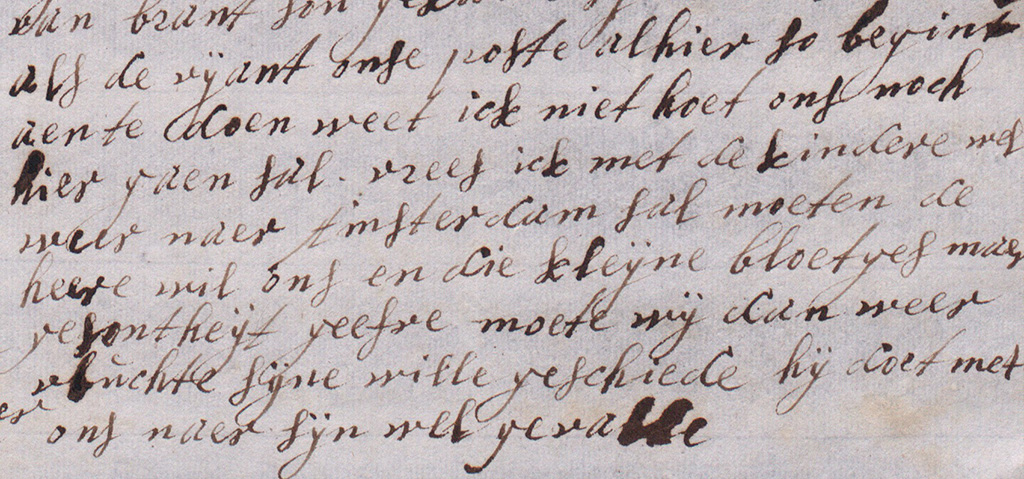 van brant son
als de vÿant onse poste alhier so begint
aen te doen weet ick niet hoet ons noch
hier gaen sal. vrees ick met de kindere wel
weer naer Amsterdam sal moeten de
heere wil ons en die kleÿne bloetges maer
gesontheÿt geefve moete wÿ dan weer
vluchte sÿne wille geschiede hÿ doet met
ons naer sÿn wel gevalle